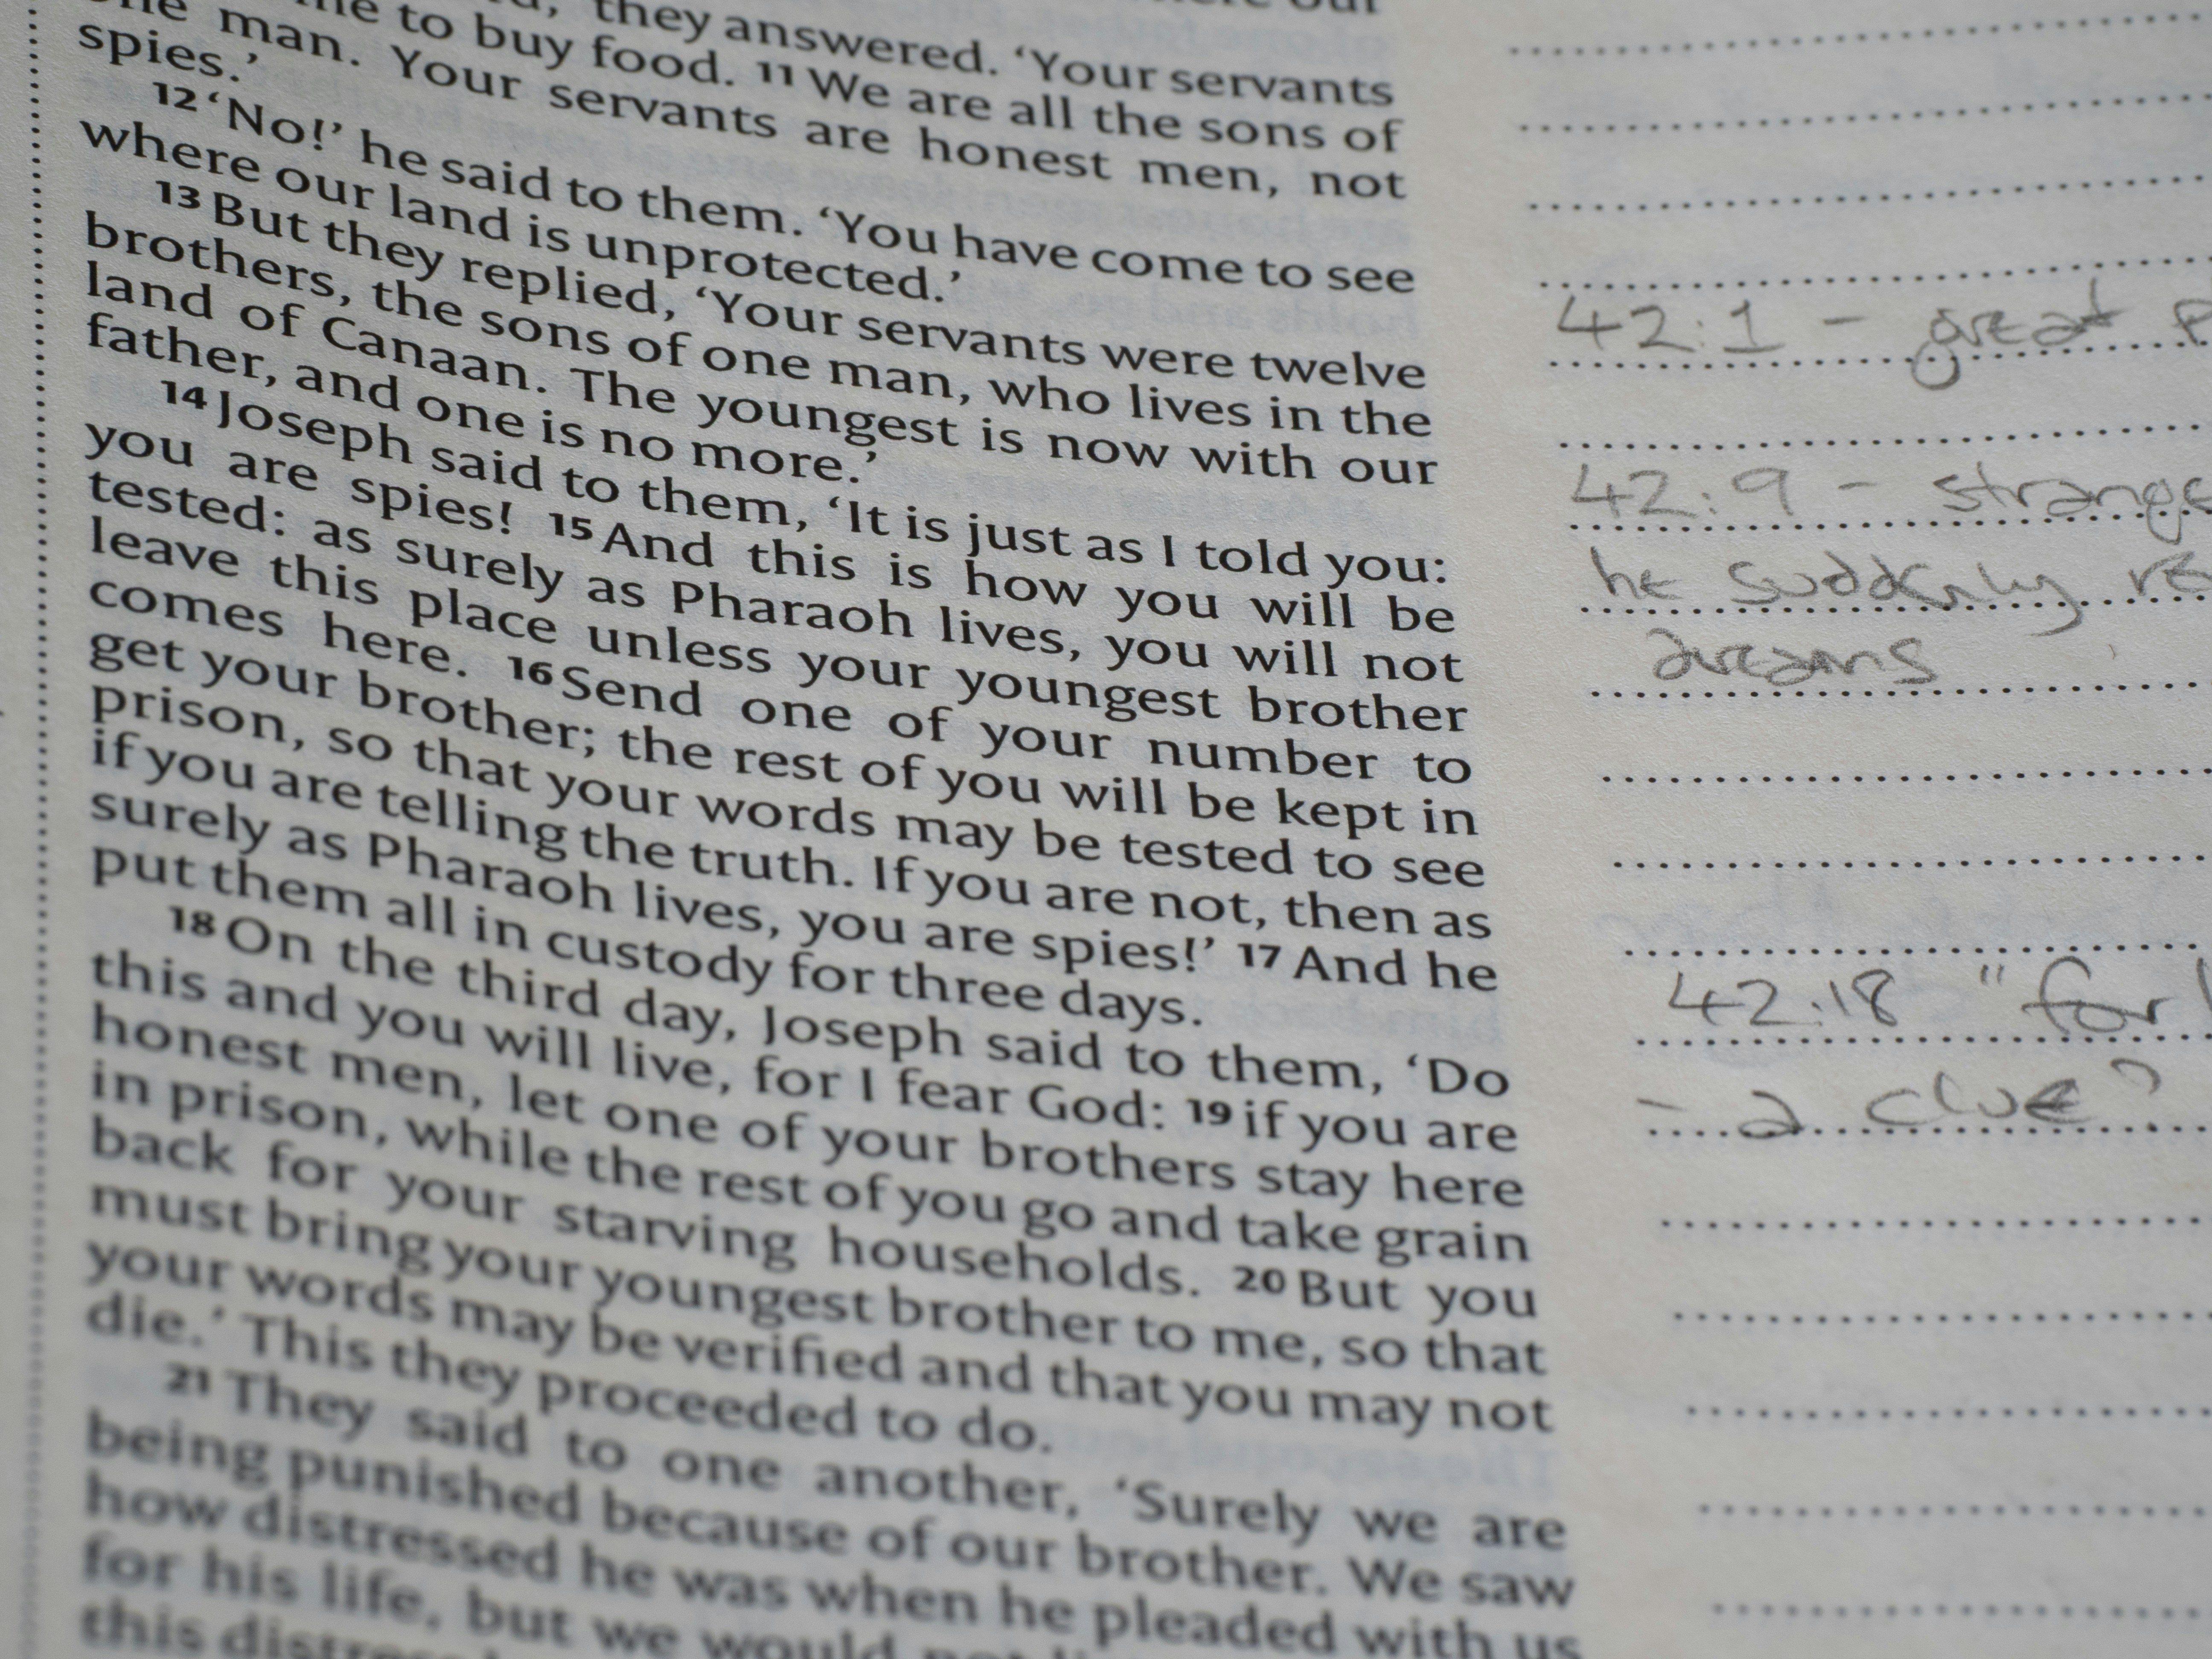 they answered. ‘Your servants
to buy food. 11 We are all the sons of
one man. Your servants are honest men, not
spies.’
12 ‘No!’ he said to them. ‘You have come to see
where our land is unprotected.’
13 But they replied, ‘Your servants were twelve
brothers, the sons of one man, who lives in the
land of Canaan. The youngest is now with our
father, and one is no more.’
14 Joseph said to them, ‘It is just as I told you:
you are spies! 15 And this is how you will be
tested: as surely as Pharaoh lives, you will not
leave this place unless your youngest brother
comes here. 16 Send one of your number to
get your brother; the rest of you will be kept in
prison, so that your words may be tested to see
if you are telling the truth. If you are not, then as
surely as Pharaoh lives, you are spies!’ 17 And he
put them all in custody for three days.
18 On the third day, Joseph said to them, ‘Do
this and you will live, for I fear God: 19 if you are
honest men, let one of your brothers stay here
in prison, while the rest of you go and take grain
back for your starving households. 20 But you
must bring your youngest brother to me, so that
your words may be verified and that you may not
die.’ This they proceeded to do.
21 They said to one another, ‘Surely we are
being punished because of our brother. We saw
how distressed he was when he pleaded with us
for his life, but we would not
this
42:1 - great
42:9 - strange
he suddenly re
dreams
42:18 "for I
- a clue?